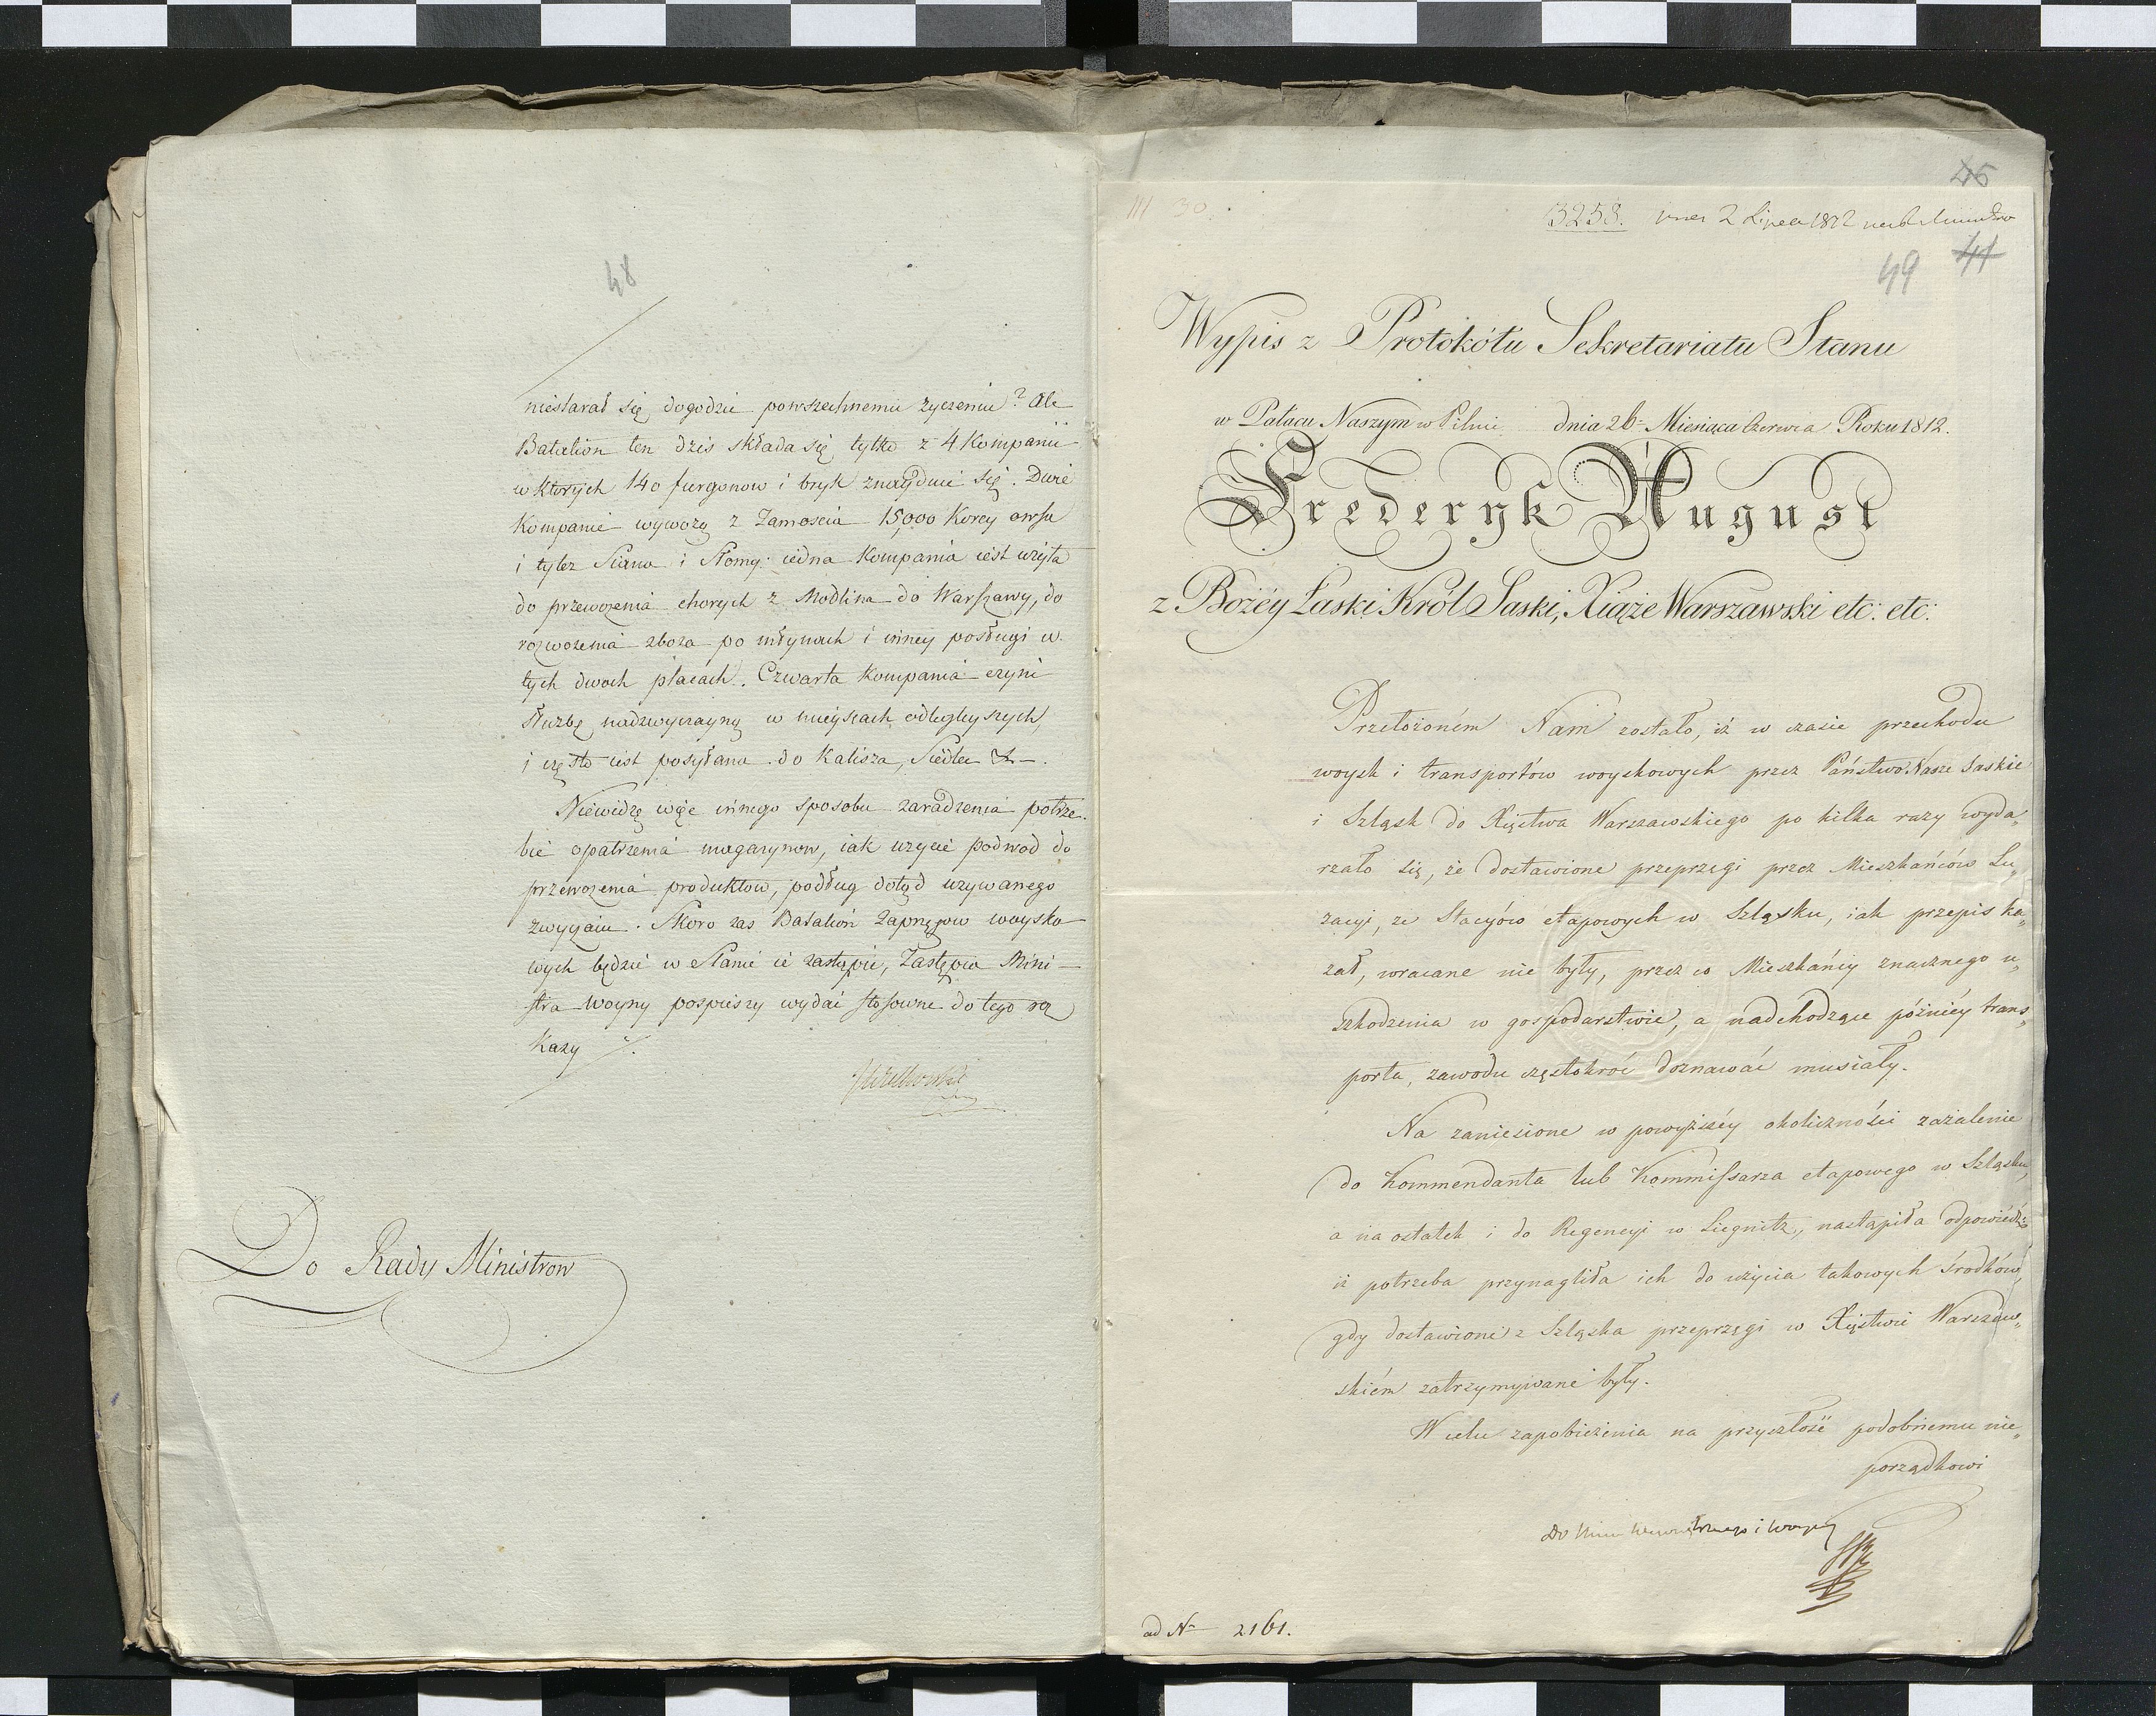 48
niestarał się dogodzie powszechnemu życzeniu? Ale
Batalion ten dziś składa się tylko z 4 Kompanii
w ktorych 140 furgonow i bryk znayduie się. Dwie
Kompanie wywożą z Zamoscia 15,000 Korcy owsa
i tylez Siana i Słomy: iedna Kompania iest użyta
do przewozenia chorych z Modlina do Warszawy, do
rozwozenia zboza po młynach i inney posługi w
tych dwoch placach. Czwarta Kompania czyni
służbę nadzwyczayną w mieyscach odległeyszych,
i często iest posyłana do Kalisza, Siedlec &-.
Niewidzę więc innego sposobu zaradzenia potrze-
bie opatrzenia magazynow, iak uzycie podwod do
przewozenia produktow, podług dotąd uzywanego
zwyczaiu. Skoro zas Batalion Zaprzęgow woysko-
wych będzie w Stanie ie zastąpić, Zastępca Mini-
stra Woyny pospieszy wydać stosowne do tego roz
kazy
Do Rady Ministrow
45
III 30.
3258. 2 Lipca 1812
49 41
Wypis z Protokółu Sekretariatu Stanu
w Pałacu Naszym w Pilnic dnia 26 Miesiąca Czerwca Roku 1812.
Frederyk August
z Bożéy Łaski Król Saski, Xiąże Warszawski etc: etc:
Przełożoném Nam zostało, iż w czasie przechodu
woysk i transportów woyskowych przez Państwo Nasze Saskie
i Szląsk do Xięstwa Warszawskiego po kilka razy wyda„
rzało się, że dostawione przeprzęgi przez Mieszkańców Lu„
zacyi, ze Stacyów etapowych w Szląsku, iak przepis ka„
zał, wracane nie były, przez co Mieszkańcy znacznego u„
szkodzenia w gospodarstwie, a nadchodzące późniéy trans„
porta, zawodu częstokroć doznawać musiały.
Na zaniesione w powyższéy okoliczności zażalenie
do Kommendanta lub Kommissarza etapowego w Szląsku,
a na ostatek i do Regencyi w Liegnitz, nastąpiła odpowiedź:
iż potrzeba przynagliła ich do użycia takowych środków,
gdy dostawione z Szląska przeprzęgi w Xięstwie Warszaw„
skiém zatrzymywane były.
W celu zapobieżenia na przyszłość podobnemu nie„
porządkowi
do Wewnętrznego i Woyny
ad N 2161.